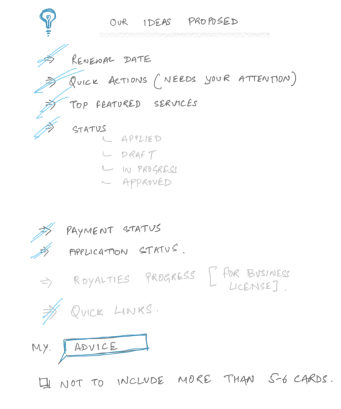 OUR IDEAS PROPOSED
⇒ RENEWAL DATE
⇒ QUICK ACTIONS (NEEDS YOUR ATTENTION)
⇒ TOP FEATURED SERVICES
⇒ STATUS
APPLIED
DRAFT
IN PROGRESS
APPROVED
⇒ PAYMENT STATUS
⇒ APPLICATION STATUS.
⇒ ROYALTIES PROGRESS [FOR BUSINESS
LICENSE].
⇒ QUICK LINKS.
MY ADVICE
NOT TO INCLUDE MORE THAN 5-6 CARDS.